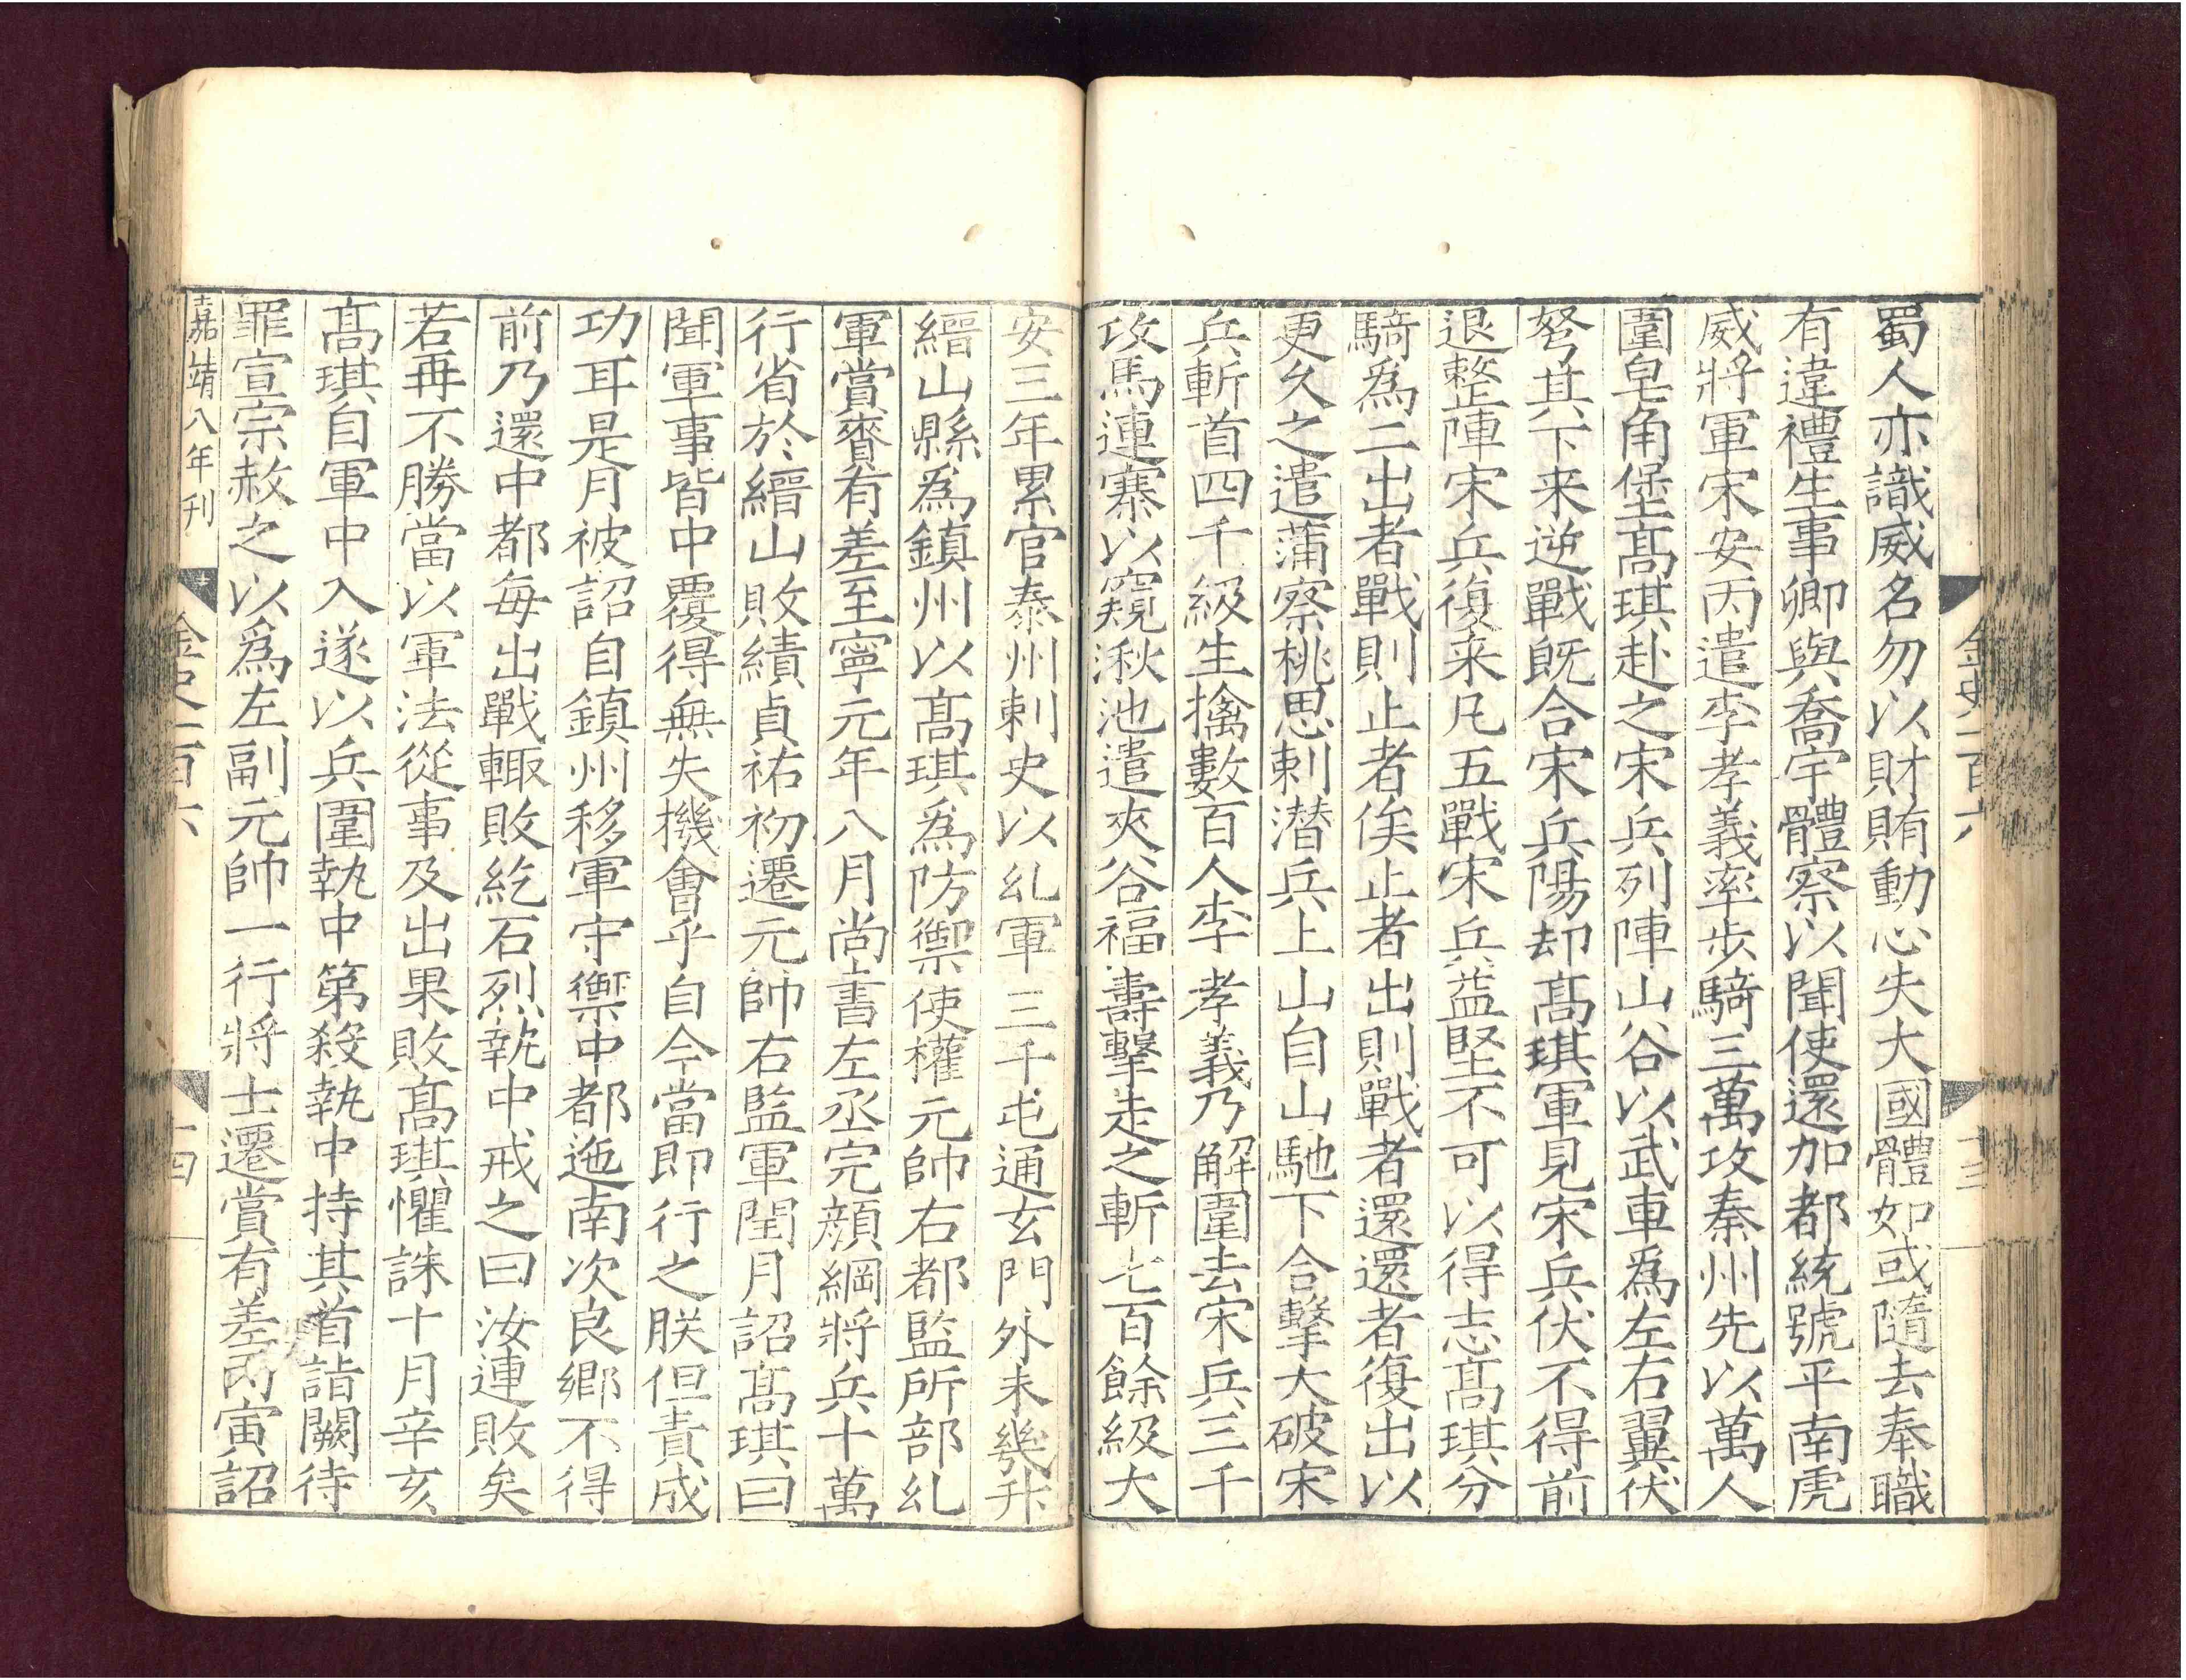 金史一百六
十三
蜀人亦識威名勿以財賄動心失大國體如或隨去奉職
有違禮生事卿與喬宇體察以聞使還加都統號平南虎
威將軍宋安丙遣李孝義率步騎三萬攻秦州先以萬人
圍皂角堡高琪赴之宋兵列陣山谷以武車爲左右翼伏
弩其下来逆戰旣合宋兵陽却高琪軍見宋兵伏不得前
退整陣宋兵復来凡五戰宋兵益堅不可以得志高琪分
騎爲二出者戰則止者俟止者出則戰者還還者復出以
更久之遣蒲察桃思剌潛兵上山自山馳下合擊大破宋
兵斬首四千級生擒數百人李孝義乃解圍去宋兵三千
攻馬連寨以窺湫池遣夾谷福壽擊走之斬七百餘級大
安三年累官泰州刺史以乣軍三千屯通玄門外未幾升
縉山縣爲鎮州以高琪爲防禦使權元帥右都監所部乣
軍賞賚有差至寧元年八月尚書左丞完顔綱將兵十萬
行省於縉山敗績貞祐初遷元帥右監軍閏月詔高琪曰
聞軍事皆中覆得無失機會乎自今當即行之朕但責成
功耳是月被詔自鎮州移軍守禦中都迤南次良鄉不得
前乃還中都每出戰輒敗紇石烈執中戒之曰汝連敗矣
若再不勝當以軍法從事及出果敗高琪懼誅十月辛亥
高琪自軍中入遂以兵圍執中第殺執中持其首詣闕待
罪宣宗赦之以爲左副元帥一行將士遷賞有差丙寅詔
嘉靖八年刊
金史一百六
十四